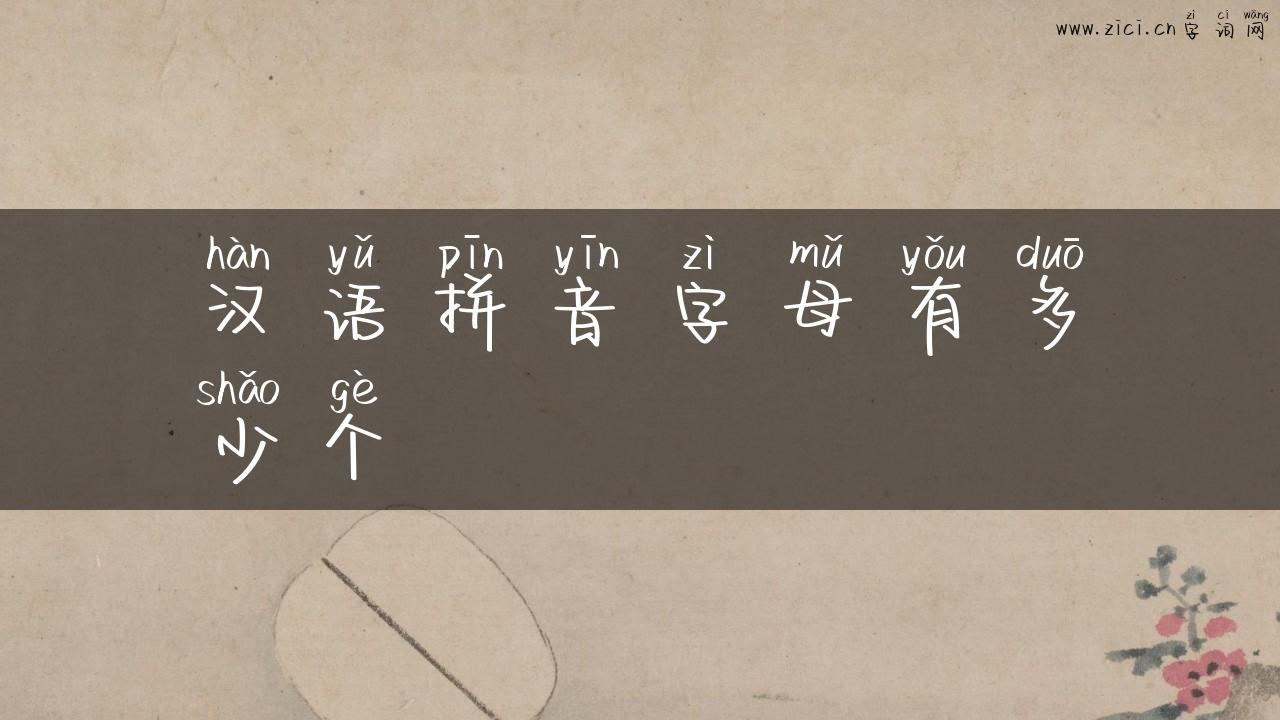 www.zici.cn
zì cí wǎng
字词网
hàn yǔ pīn yīn zì mǔ yǒu duō
汉语拼音字母有多
shǎo gè
少个